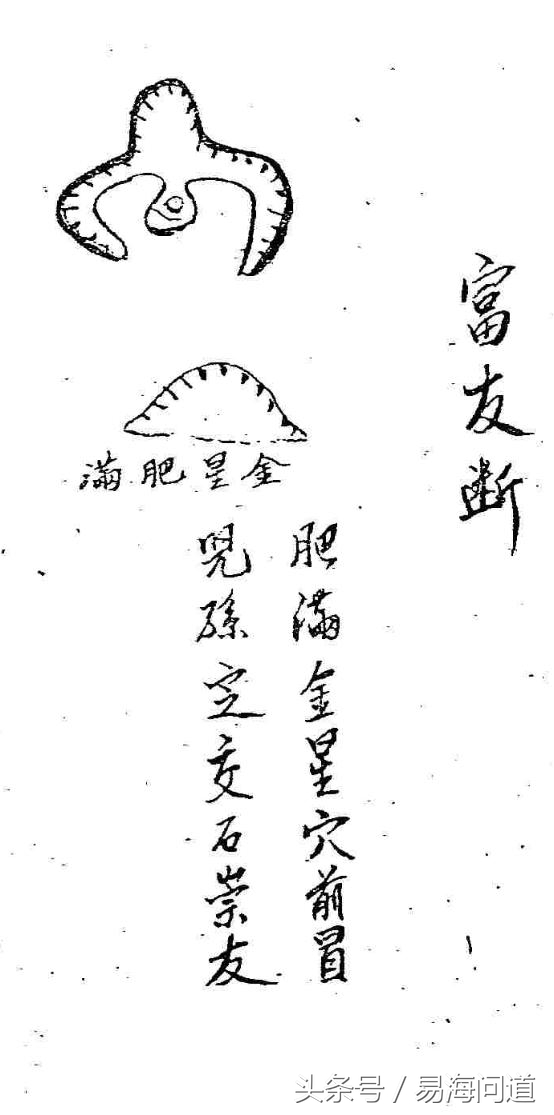 富友斷
肥滿金星穴前冒
兒孫定交石崇友
滿肥星金
头条号 / 易海问道